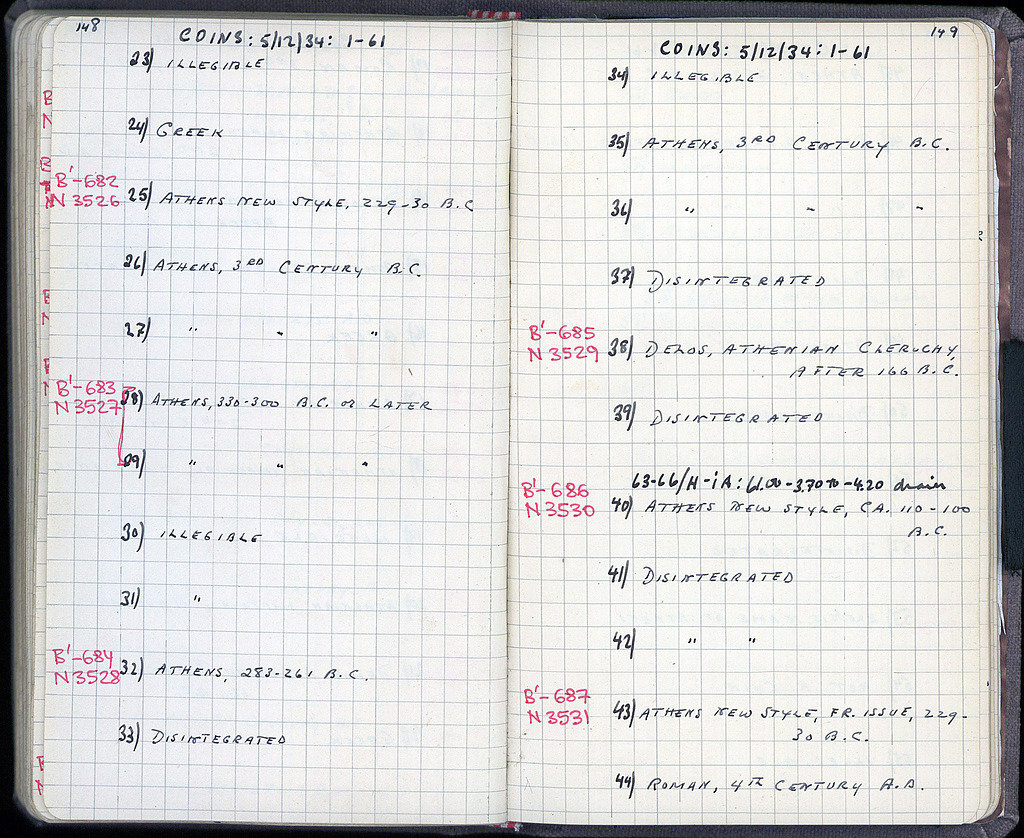 148
COINS: 5/12/34: 1-61
23) ILLEGIBLE
24) GREEK
B'-682
N 3526 25) ATHENS NEW STYLE, 229-30 B.C
26) ATHENS, 3RD CENTURY B.C.
27) " " "
B'-683
N 3527 28) ATHENS, 330-300 B.C. or LATER
29) " " "
30) ILLEGIBLE
31) "
B'-684
N 3528 32) ATHENS, 283-261 B.C.
33) DISINTEGRATED
149
COINS: 5/12/34: 1-61
34) ILLEGIBLE
35) ATHENS, 3RD CENTURY B.C.
36) " " "
37) DISINTEGRATED
B'-685
N 3529 38) DELOS, ATHENIAN CLERUCHY,
AFTER 166 B.C.
39) DISINTEGRATED
63-66/H-IA: 61.00-3.70 to -4.20 drain
B'-686
N 3530 40) ATHENS NEW STYLE, CA. 110-100
B.C.
41) DISINTEGRATED
42) " "
B'-687
N 3531 43) ATHENS NEW STYLE, FR. ISSUE, 229-
30 B.C.
44) ROMAN, 4TH CENTURY A.D.